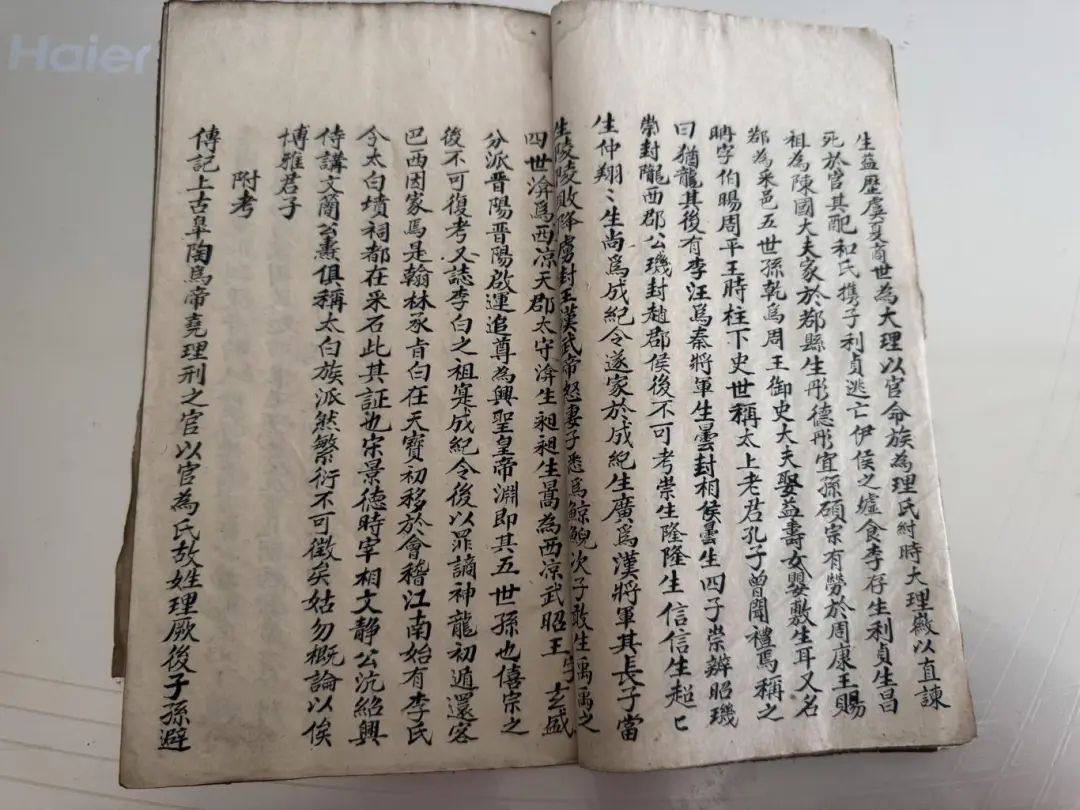 Haier
生益歷虞夏商世為大理以官命族為理氏紂時大理徵以直諫
死於官其配和氏携子利貞逃亡伊侯之墟食李存生利貞生昌
祖為陳國大夫家於鄀縣生彤德彤宜孫碩宗有勞於周康王賜
鄀為采邑五世孫乾爲周王御史大夫娶益壽女嬰敷生耳又名
聃字伯陽周平王時柱下史世稱太上老君孔子曾聞禮焉稱之
曰猶龍其後有李汪爲秦將軍生曇封相侯曇生四子崇辨昭璣
崇封隴西郡公璣封趙郡侯後不可考崇生隆隆生信信生超匕
生仲翔〻生尚爲成紀令遂家於成紀生廣爲漢將軍其長子當
生陵陵敗降虜封王漢武帝怒妻子悉爲鯨鯢次子敢生禹禹之
四世渰爲西凉天郡太守渰生昶昶生暠為西凉武昭王字玄盛
分派晋陽晋陽啟運追尊為興聖皇帝淵即其五世孫也僖宗之
後不可復考又誌李白之祖寔成紀令後以罪謫神龍初遁還客
巴西因家焉是翰林承旨白在天寶初移於會稽江南始有李氏
今太白墳祠都在采石此其証也宋景德時宰相文靜公沆紹興
侍講文蕳公燾俱稱太白族派然繁衍不可徵矣姑勿概論以俟
博雅君子
附考
傳記上古臯陶爲帝堯理刑之官以官為氏故姓理厥後子孫避